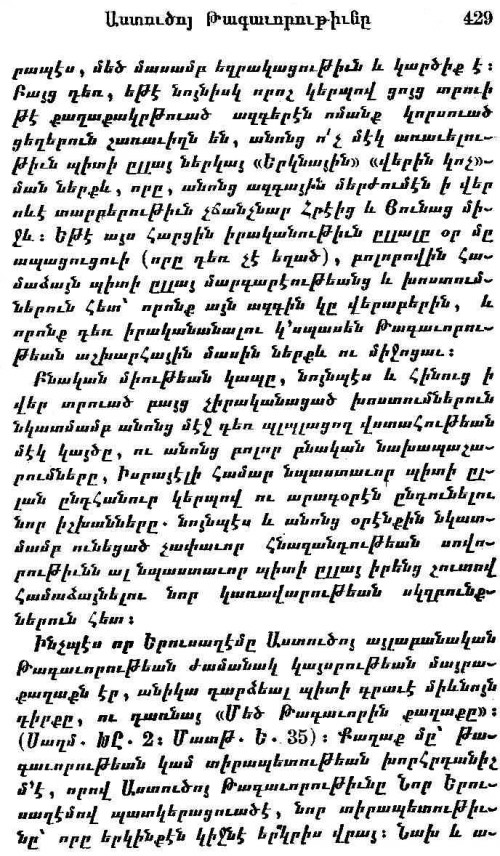 Աստուծոյ Թագաւորութիւնը 429
րապէս, մեծ մասամբ եզրակացութիւն և կարծիք է։
Բայց դեռ, եթէ նոյնիսկ որոշ կերպով ցոյց տրուի
թէ քաղաքակրթուած ազգերէն ոմանք կորսուած
ցեղերուն չառաւիղն են, անոնց ո՛չ մէկ առաւելու-
թիւն պիտի ըլլայ ներկայ «Երկնային» «վերին կոչ»-
ման ներքև, որը, անոնց ազգային մերժումէն ի վեր
ոևէ տարբերութիւն չճանչնար Հրէից և Յունաց մի-
ջև։ Եթէ այս Հարցին իրականութիւն ըլլալը օր մը
ապացուցուի (որը դեռ չէ եղած), բոլորովին Հա-
մաձայն պիտի ըլլայ մարգարէութեանց և խոստում-
ներուն Հետ՝ որոնք այն ազգին կը վերաբերին, և
որոնք դեռ իրականանալու կ՚սպասեն Թագաւորու-
թեան աշխարՀային մասին ներքև ու միջոցաւ։
Բնական միութեան կապը, նոյնպէս և Հինուց ի
վեր տրուած բայց չիրականացած խոստումներուն
նկատմամբ անոնց մէջ դեռ պլպլացող վստաՀութեան
մէկ կայծը, ու անոնց բոլոր բնական նախապաշա-
րումները, Իսրայէլի Համար նպաստաւոր պիտի ըլ-
լան ընդՀանուր կերպով ու արագօրէն ընդունելու
նոր իշխանները. նոյնպէս և անոնց օրէնքին նկատ-
մամբ ունեցած չափաւոր Հնազանդութեան սովո-
րութիւնն ալ նպաստաւոր պիտի ըլլայ իրենց շուտով
Համաձայնելու նոր կառավարութեան սկզբունք-
ներուն Հետ։
Ինչպէս որ Երուսաղէմը Աստուծոյ այլաբանական
Թագաւորութեան ժամանակ կայսրութեան մայրա-
քաղաքն էր, անիկա դարձեալ պիտի գրաւէ միևնոյն
դիրքը, ու դառնայ «Մեծ Թագաւորին քաղաքը»։
(Սաղմ. ԽԸ. 2։ Մատթ. Ե. 35)։ Քաղաք մը՝ թա-
գաւորութեան կամ տիրապետութեան խորՀրդանիշ
մ՚է, որով Աստուծոյ Թագաւորութիւնը Նոր Երու-
սաղէմով պատկերացուածէ, նոր տիրապետութիւ-
նը՝ որը երկինքէն կիջնէ երկրիս վրայ։ Նախ և ա-